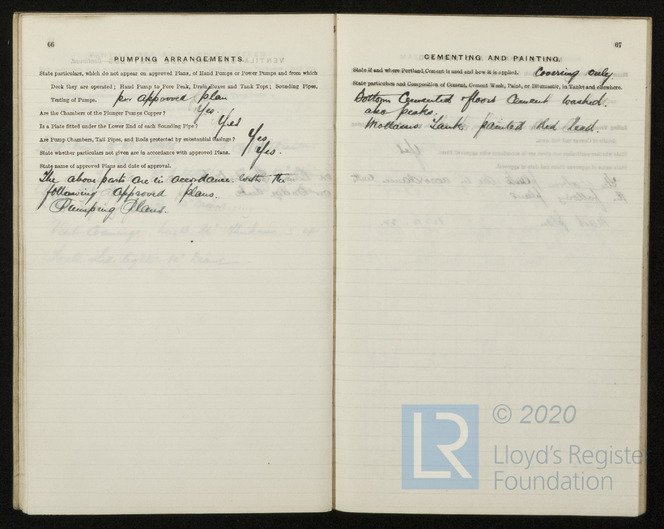 66
PUMPING ARRANGEMENTS.
State particulars, which do not appear on approved Plans, of Hand Pumps or Power Pumps and from which
Deck they are operated; Hand Pump to Fore Peak, Drain Boxes and Tank Tops; Sounding Pipes,
Testing of Pumps. per approved plan
Are the Chambers of the Plunger Pumps Copper? Yes.
Is a Plate fitted under the Lower End of each Sounding Pipe? Yes
Are Pump Chambers, Tail Pipes, and Rods protected by substantial Casings? Yes
State whether particulars not given are in accordance with approved Plans. Yes.
State name of approved Plans and date of approval.
The above parts are in accordance with the
following approved plans.
Pumping Plans.
67
CEMENTING AND PAINTING.
State if and where Portland Cement is used and how it is applied. Covering only.
State particulars and Composition of Cement, Cement Wash, Paint, or Bitumastic, in Tanks and elsewhere.
Bottom Cemented floors Cement washed.
also peaks.
Molasses Tank painted Red lead.
LR
© 2020
Lloyd's Register
Foundation